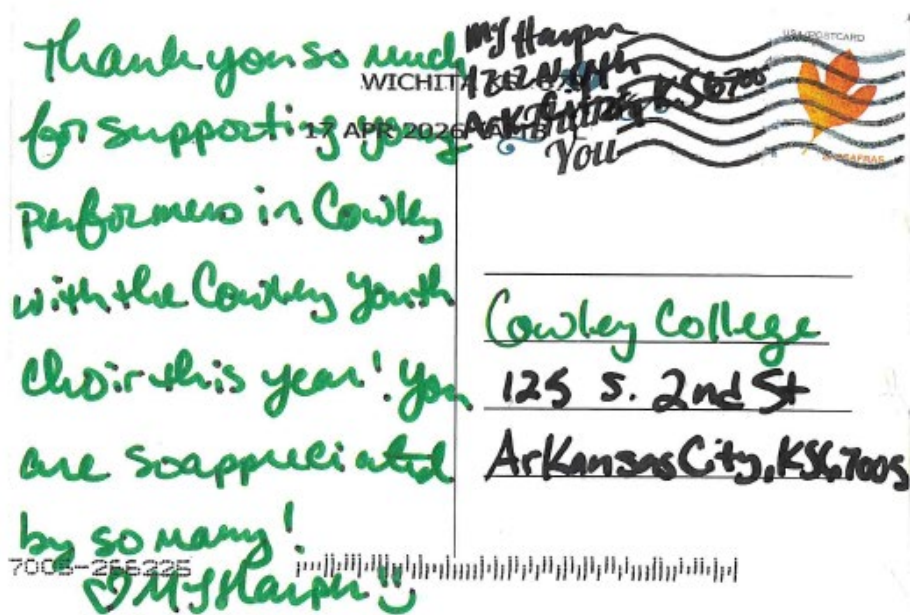 Thank you so much
for supporting young
performers in Cowley
with the Cowley Youth
Choir this year! You
are so appreciated
by so many!
♡ MJ Harper
MJ Harper
Ark City, KS 67005
WICHITA
17 APR 2026
You
USA/POSTCARD
SASSAFRAS
Cowley College
125 S. 2nd St
Arkansas City, KS 67005